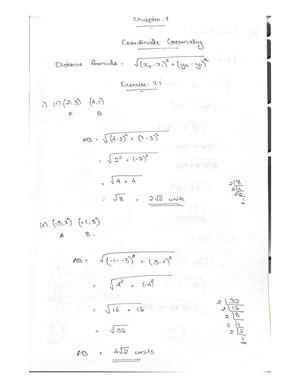 Chapter-7
Coordinate Geometry
Distance formula = √(x₂-x₁)² + (y₂-y₁)²
Exercise 7.1
1) (i) (2,3) (4,1)
A B
AB = √(4-2)² + (1-3)²
= √2² + (-2)²
= √4 + 4
= √8 = 2√2 units
2 8
2 4
2 2
1
(ii) (-5,7) (-1,3)
A B
AB = √(-1--5)² + (3-7)²
= √4² + (-4)²
= √16 + 16
= √32
AB = 4√2 units
2 32
2 16
2 8
2 4
2 2
1